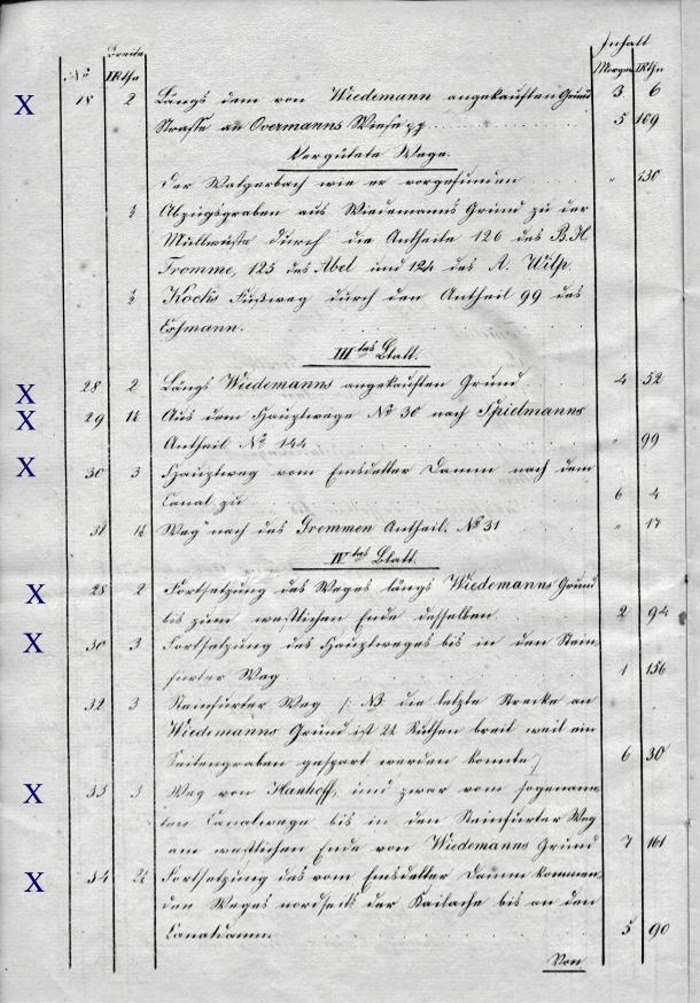 Breite Inhalt
No. □Rthn Morgen □Rthn
X 18 2 Längs dem von Wiedemann angekauften Grund 3 6
Strasse an Overmanns Wiese pp 5 109
Vergütete Wege.
Der Walgerbach wie er vorgefunden " 130
½ Abzugsgraben aus Wiedemanns Grund zu der
durch die Antheile 126 des B. H.
Fromme, 125 des Abel und 124 des A. Wilp.
½ Kocks Fußweg durch den Antheil 99 des
IIItes Blatt.
X 28 2 Längs Wiedemanns angekauften Grund 4 52
X 29 1½ Aus dem Hauptwege No 30 nach Spielmanns
Antheil No 144 " 99
X 30 3 Hauptweg vom Emsdetter Damm nach dem
Canal zu 6 4
31 1½ Weg nach des Gremmen Antheil. No 31 " 17
IVtes Blatt.
X 28 2 Fortsetzung des Weges längs Wiedemanns Grund
bis zum westlichen Ende desselben 2 94
X 30 3 Fortsetzung des Hauptweges bis in den Stein-
furter Weg 1 156
32 3 Steinfurter Weg /: NB die letzte Strecke an
Wiedemanns Grund ist 2½ Ruthen breit weil ein
Seitengraben gespart werden konnte 6 30
X 33 3 Weg von Hanhoff, und zwar vom sogenann-
ten Canalwege bis in den Steinfurter Weg
am westlichen Ende von Wiedemanns Grund 7 161
X 34 2½ Fortsetzung des vom Emsdetter Damm kommen-
den Weges nordseits der bis an den
Canaldamm 5 90
Von